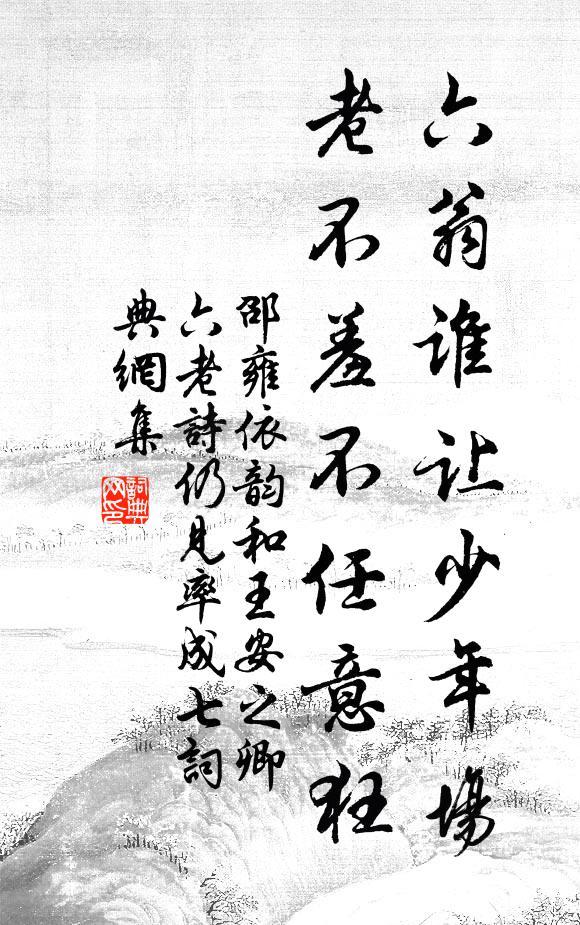 六翁谁让少年場
老不羞不任意狂
邵雍依韵和王安之卿
六老詩仍見率成七詞
典網集
詞典网印